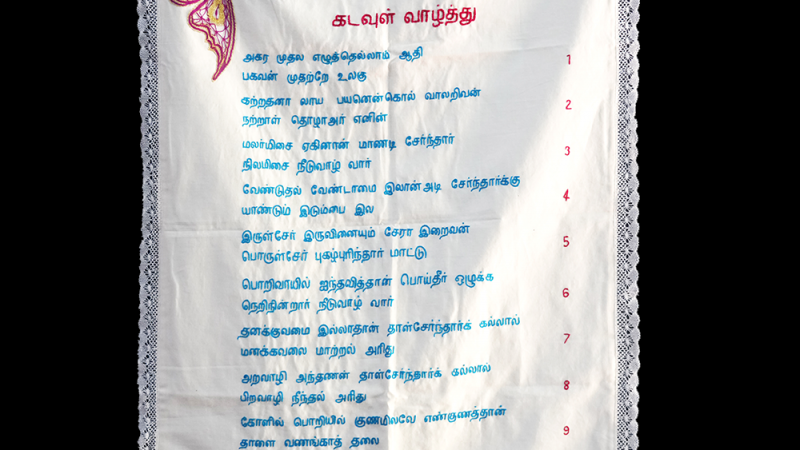 கடவுள் வாழ்த்து
அகர முதல எழுத்தெல்லாம் ஆதி
பகவன் முதற்றே உலகு
1
கற்றதனா லாய பயனென்கொல் வாலறிவன்
நற்றாள் தொழாஅர் எனின்
2
மலர்மிசை ஏகினான் மாணடி சேர்ந்தார்
நிலமிசை நீடுவாழ் வார்
3
வேண்டுதல் வேண்டாமை இலான்அடி சேர்ந்தார்க்கு
யாண்டும் இடும்பை இல
4
இருள்சேர் இருவினையும் சேரா இறைவன்
பொருள்சேர் புகழ்புரிந்தார் மாட்டு
5
பொறிவாயில் ஐந்தவித்தான் பொய்தீர் ஒழுக்க
நெறிநின்றார் நிடுவாழ் வார்
6
தனக்குவமை இல்லாதான் தாள்சேர்ந்தார்க் கல்லால்
மனக்கவலை மாற்றல் அரிது
7
அறவாழி அந்தணன் தாள்சேர்ந்தார்க் கல்லால்
பிறவாழி நீந்தல் அரிது
8
கோளில் பொறியில் குணமிலவே எண்குணத்தான்
தாளை வணங்காத் தலை
9